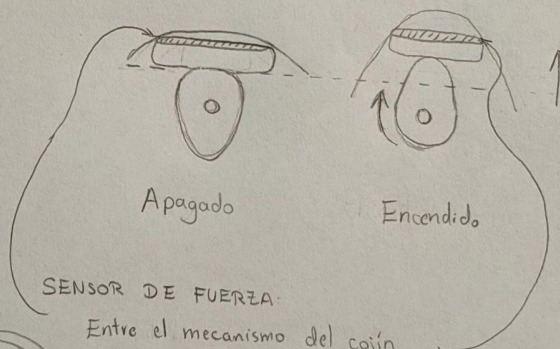 Apagado
Encendido
SENSOR DE FUERZA:
Entre el mecanismo del cojín